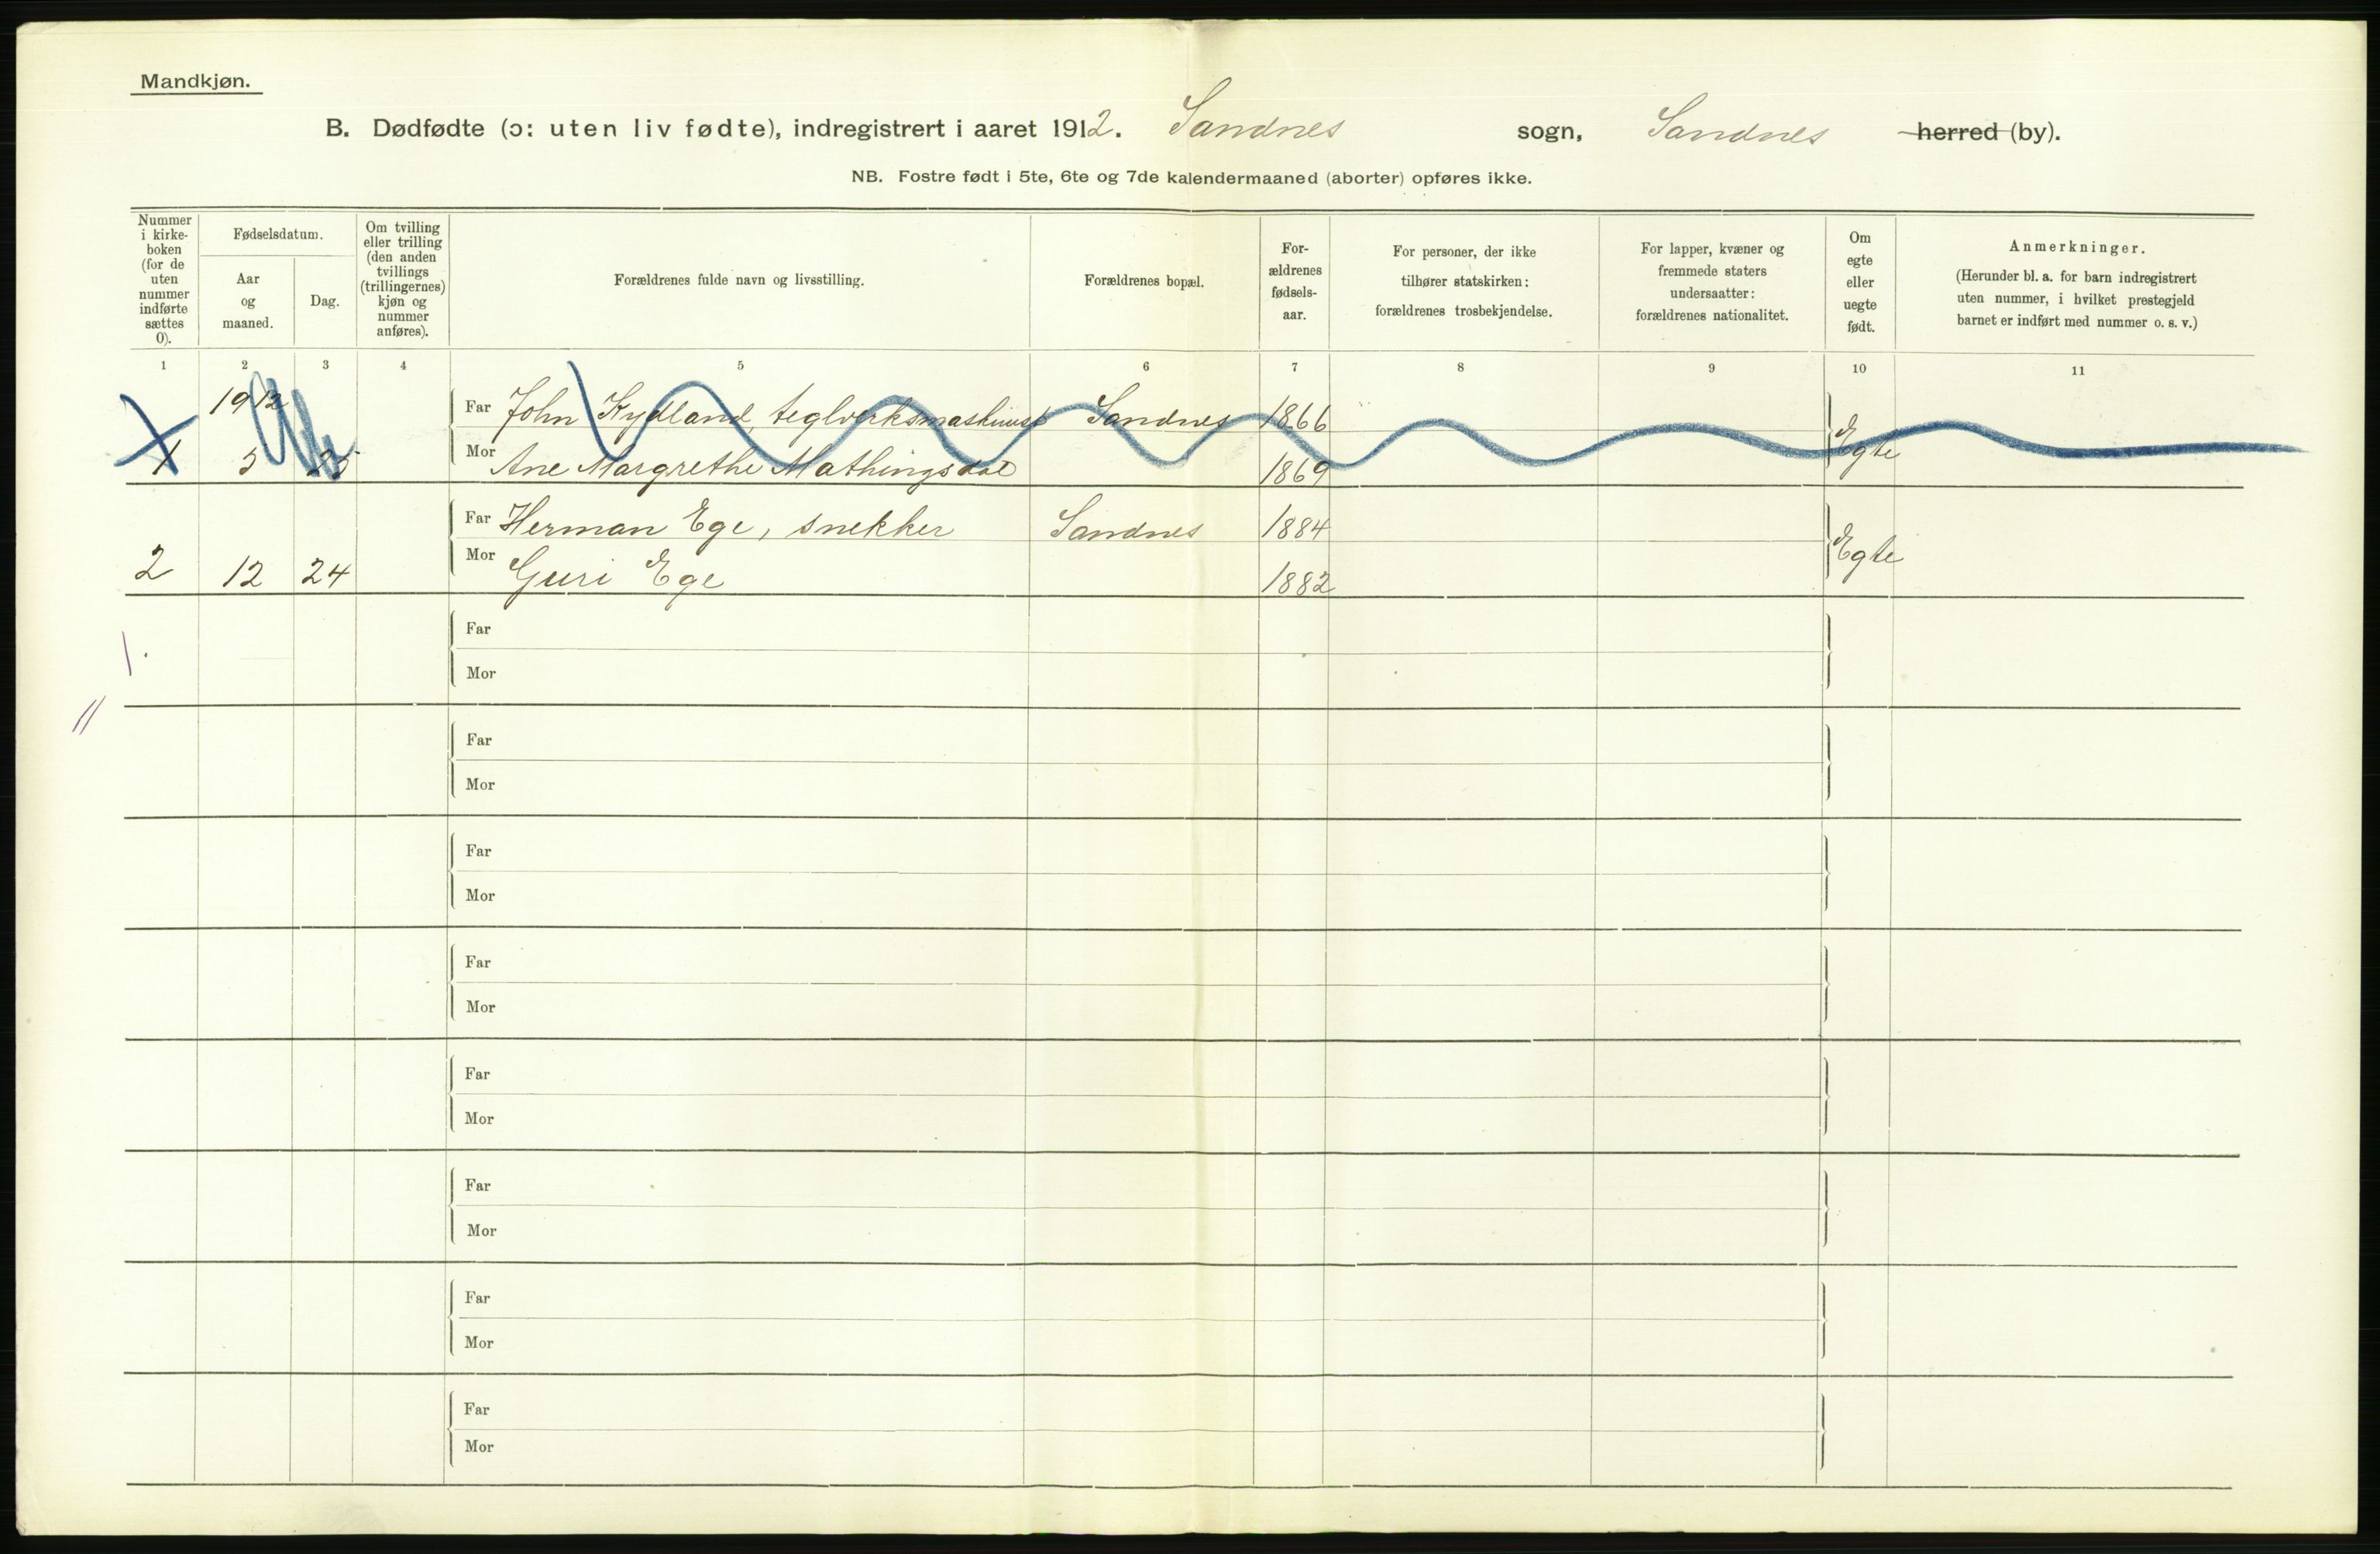 Mandkjøn.
B. Dødfødte (ɔ: uten liv fødte), indregistrert i aaret 1912. Sandnes sogn, Sandnes herred (by).
NB. Fostre født i 5te, 6te og 7de kalendermaaned (aborter) opføres ikke.
Nummer
i kirke-
boken
(for de
uten
nummer
indførte
sættes
0).
Fødselsdatum.
Aar
og
maaned.
Dag.
Om tvilling
eller trilling
(den anden
tvillings
(trillingernes)
kjøn og
nummer
anføres).
Forældrenes fulde navn og livsstilling.
Forældrenes bopæl.
For-
ældrenes
fødsels-
aar.
For personer, der ikke
tilhører statskirken:
forældrenes trosbekjendelse.
For lapper, kvæner og
fremmede staters
undersaatter:
forældrenes nationalitet.
Om
egte
eller
uegte
født.
Anmerkninger.
(Herunder bl. a. for barn indregistrert
uten nummer, i hvilket prestegjeld
barnet er indført med nummer o. s. v.)
1 2 3 4 5 6 7 8 9 10 11
1912 Far John Kydland, teglverksmaskinist Sandnes 1866
1 5 25 Mor Ane Margrethe Mathingsdal 1869 Egte
Far Herman Ege, snekker Sandnes 1884
2 12 24 Mor Guri Ege 1882 Egte
Far
Mor
Far
Mor
Far
Mor
Far
Mor
Far
Mor
Far
Mor
Far
Mor
Far
Mor